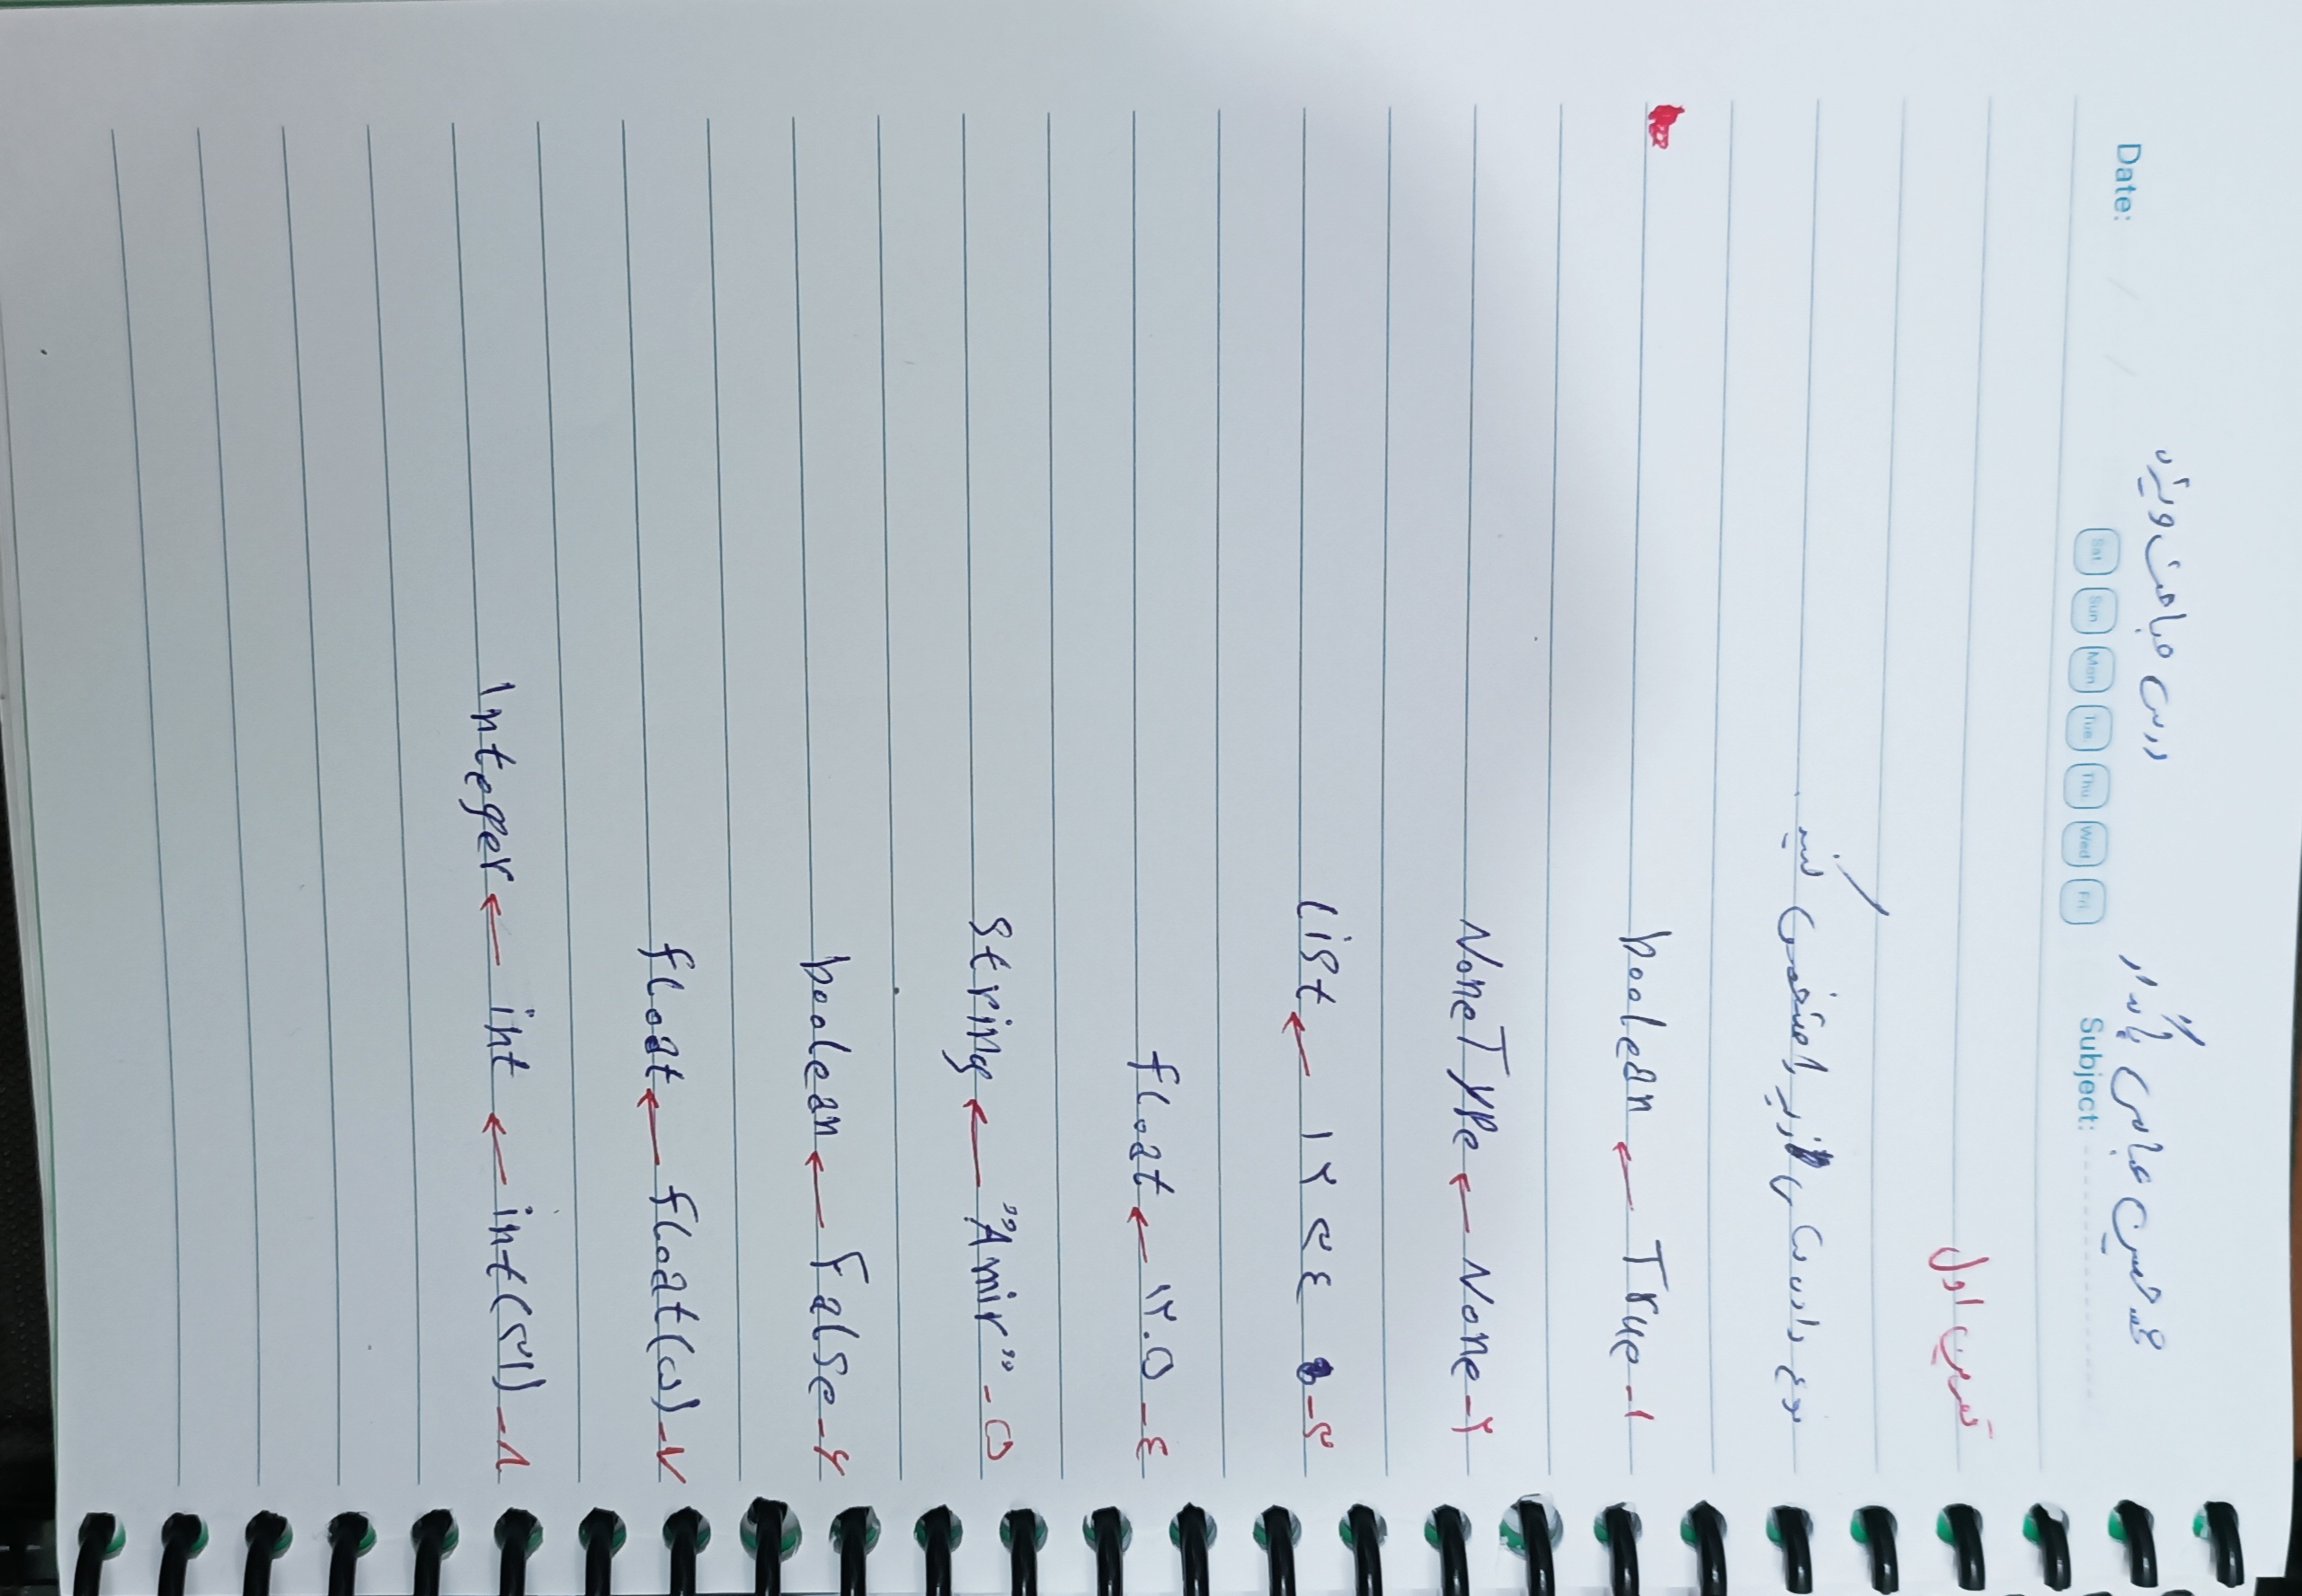 درس مباحث ویژه
Date: / / Sat Sun Mon Tue Thu Wed Fri Subject:
تمرین اول
نوع داده های زیر را مشخص کنید.
۱- True ← boolean
۲- None ← NoneType
۳- ۱۲۳۴ ← List
۴- ۱۲.۵ ← float
۵- "Amir" ← string
۶- False ← boolean
۷- float(۵) ← float
۸- int(۳۱) ← int ← Integer